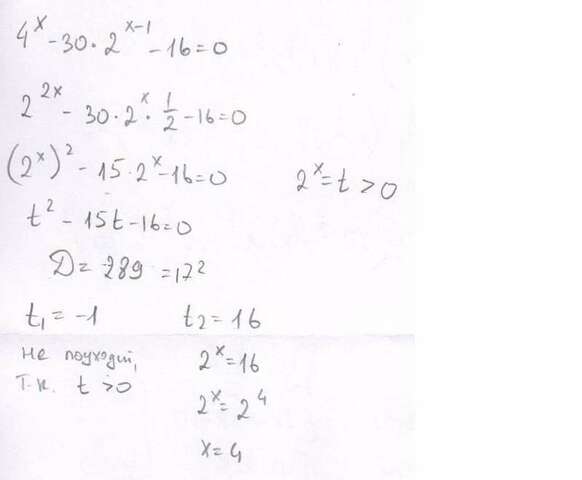 4^x - 30 · 2^(x-1) - 16 = 0
2^(2x) - 30 · 2^x · 1/2 - 16 = 0
(2^x)^2 - 15 · 2^x - 16 = 0    2^x = t > 0
t^2 - 15t - 16 = 0
D = 289 = 17^2
t₁ = -1    t₂ = 16
не подходит,    2^x = 16
т.к. t > 0    2^x = 2^4
x = 4